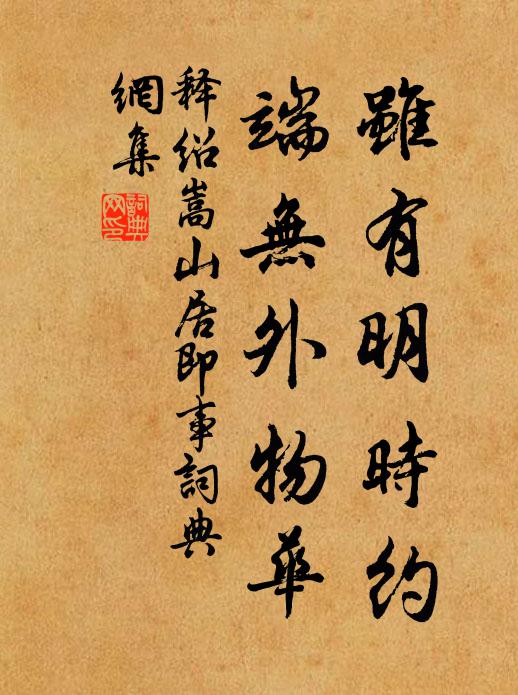 雖有明時約
端無外物華
释紹嵩山居即事詞典
網集
詞典網印